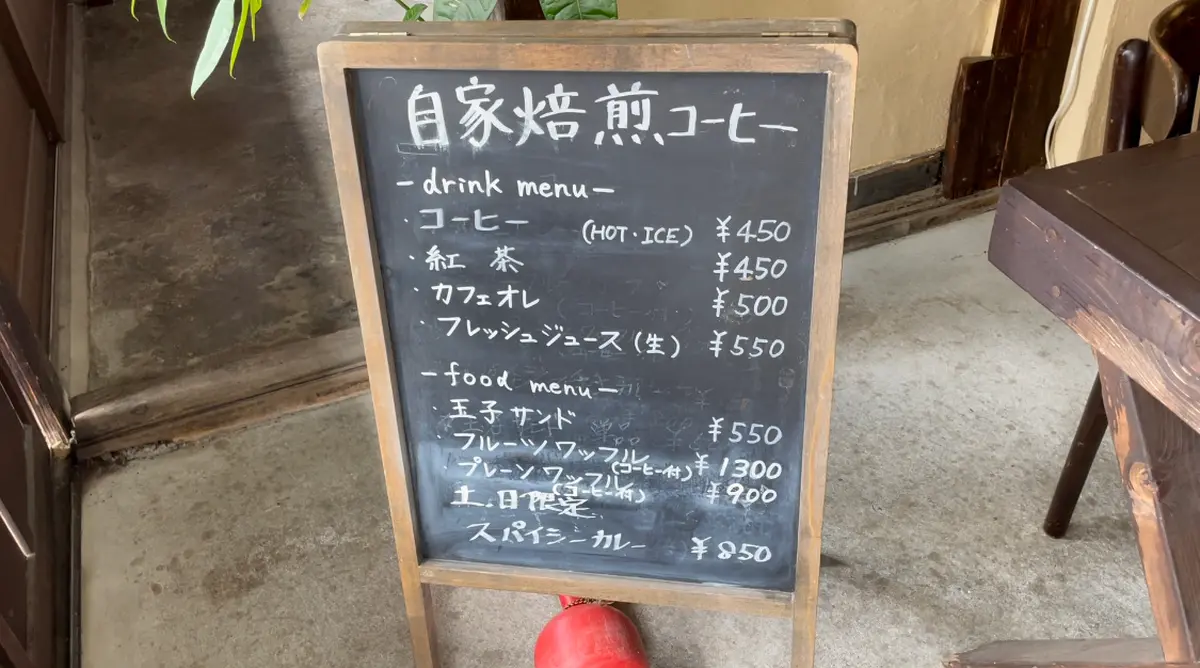 自家焙煎コーヒー
－drink menu－
・コーヒー (HOT・ICE) ¥450
・紅 茶 ¥450
・カフェオレ ¥500
・フレッシュジュース(生) ¥550
－food menu－
・玉子サンド ¥550
・フルーツワッフル (コーヒー付) ¥1300
・プレーンワッフル (コーヒー付) ¥900
土.日限定
スパイシーカレー ¥850